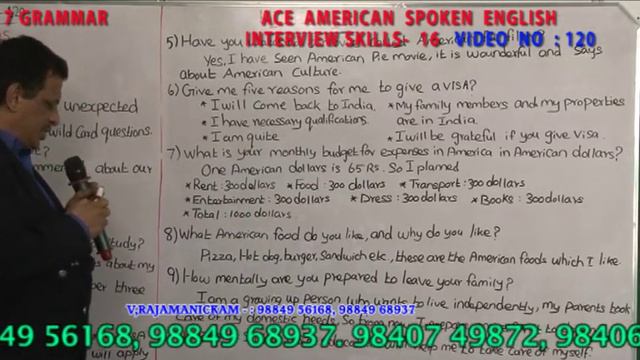 7 GRAMMAR
ACE AMERICAN SPOKEN ENGLISH
INTERVIEW SKILLS: 16 VIDEO NO : 120
unexpected
wild Card questions.
about our
study?
s about my
per three
will apply
5) Have you
Yes, I have Seen American Pie movie, it is wounderful and Says
about American Culture.
6) Give me five reasons for me to give a VISA?
* I will come back to India. * My family members and my properties
* I have necessary qualifications. are in India.
* I am quite * I will be grateful if you give Visa.
7) What is your monthly budget for expenses in America in American dollars?
One American dollars is 65 Rs. So I planed
* Rent : 300 dollars * Food : 300 dollars * Transport : 300 dollars
* Entertainment : 300 dollars * Dress : 300 dollars * Books : 300 dollars
* Total : 1000 dollars
8) What American food do you like, and why do you like?
Pizza, Hot dog, burger, Sandwich etc., these are the American foods which I like
9) How mentally are you prepared to leave your family?
I am a growing up person who wants to live independently, my parents took
care of my domestic needs. So
me to take care of myself.
V.RAJAMANICKAM - : 98849 56168, 98849 68937
49 56168, 98849 68937, 98407 49872, 98406